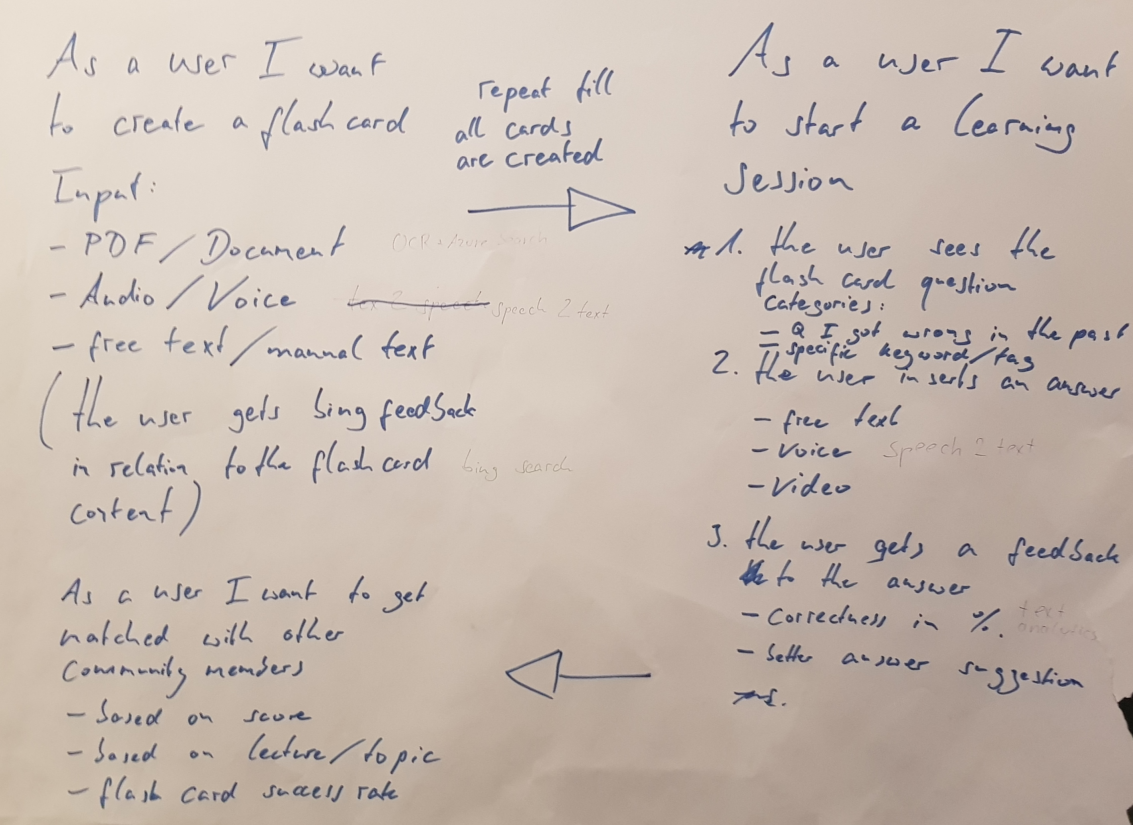 As a user I want
to create a flash card
Input:
- PDF / Document OCR + Azure Search
- Audio / Voice tex 2 speech speech 2 text
- free text / manual text
(the user gets bing feedback
in relation to the flash card bing search
content)
repeat till
all cards
are created
As a user I want
to start a learning
session
1. the user sees the
flash card question
Categories:
- Q I got wrong in the past
- specific keyword/tag
2. the user inserts an answer
- free text
- Voice speech 2 text
- Video
3. the user gets a feedback
to the answer
- Correctness in %. text
analytics
- better answer suggestion
As a user I want to get
matched with other
Community members
- based on score
- based on lecture/topic
- flash card success rate